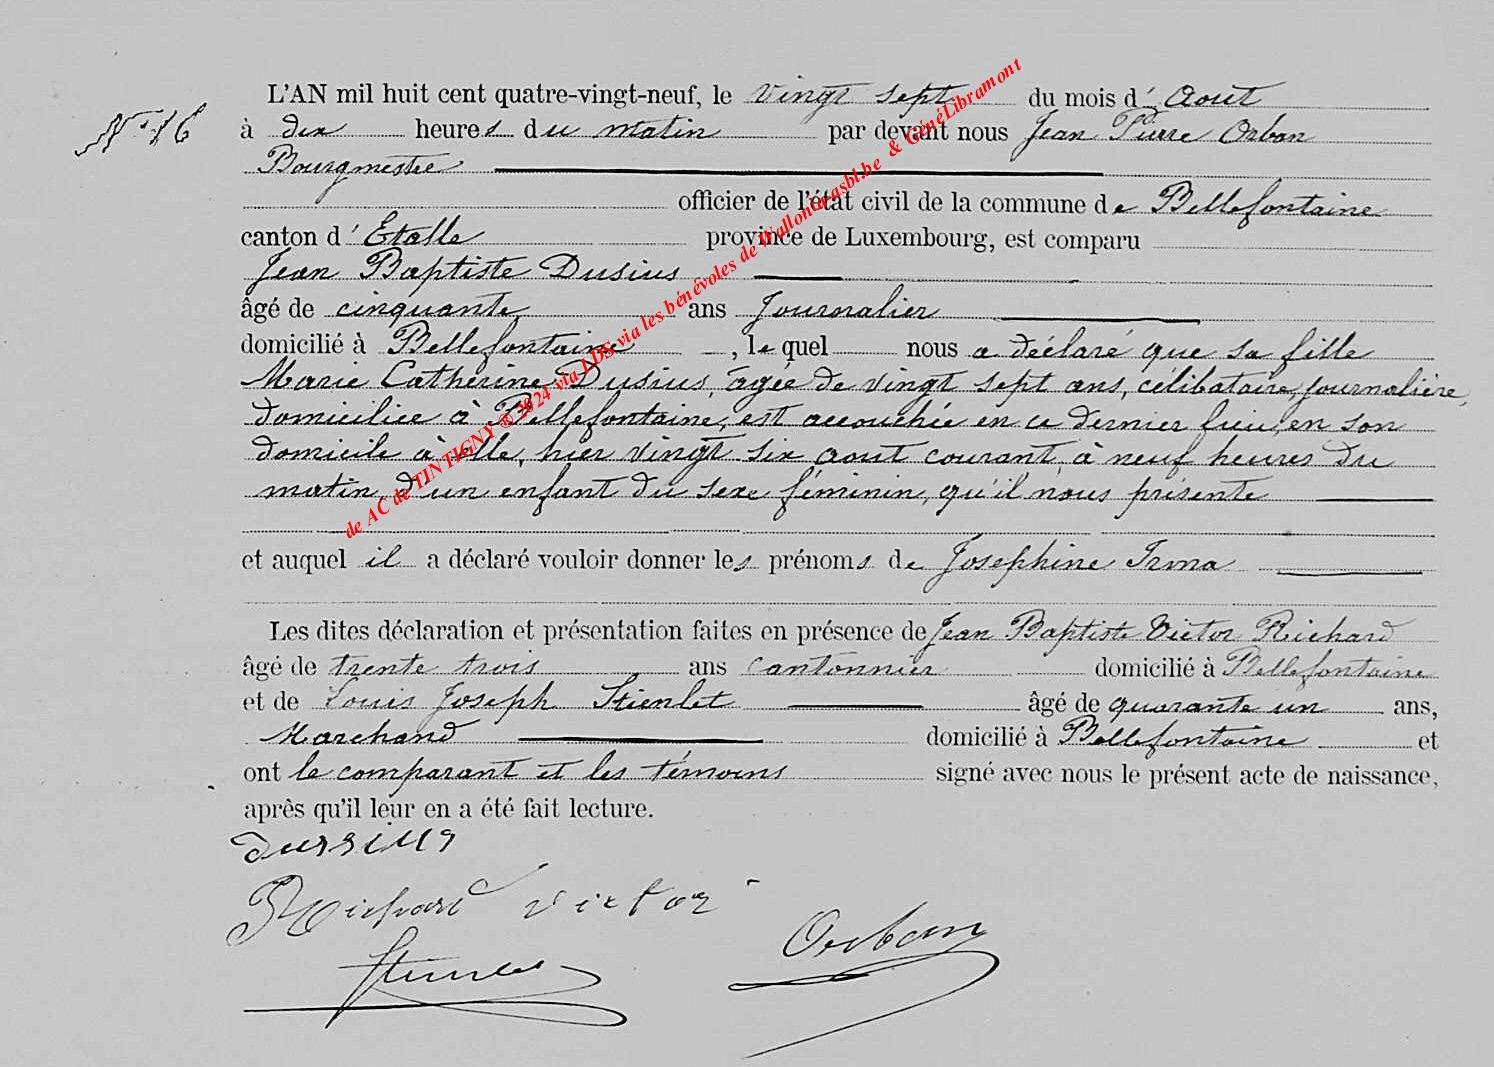 N° 16
L'AN mil huit cent quatre-vingt-neuf, le vingt sept du mois d' Aout
à dix heures du matin par devant nous Jean Pierre Orban
Bourgmestre
officier de l'état civil de la commune de Bellefontaine
canton d' Etalle province de Luxembourg, est comparu
Jean Baptiste Dusius
âgé de cinquante ans Journalier
domicilié à Bellefontaine, le quel nous a déclaré que sa fille
Marie Catherine Dusius, agée de vingt sept ans, célibataire, journalière,
domiciliée à Bellefontaine, est accouchée en ce dernier lieu, en son
domicile à elle, hier vingt six aout courant, à neuf heures du
matin, d'un enfant du sexe féminin, qu'il nous présente
et auquel il a déclaré vouloir donner les prénoms de Joséphine Irma
Les dites déclaration et présentation faites en présence de Jean Baptiste Victor Richard
âgé de trente trois ans cantonnier domicilié à Bellefontaine
et de Louis Joseph Stienlet âgé de quarante un ans,
Marchand domicilié à Bellefontaine et
ont le comparant et les témoins signé avec nous le présent acte de naissance,
après qu'il leur en a été fait lecture.
Dussius
Richard Victor
Orban
de AC de TINTIGNY @ 2024 via LDS via les bénévoles de Wallonia asbl.be & GénéLibramont